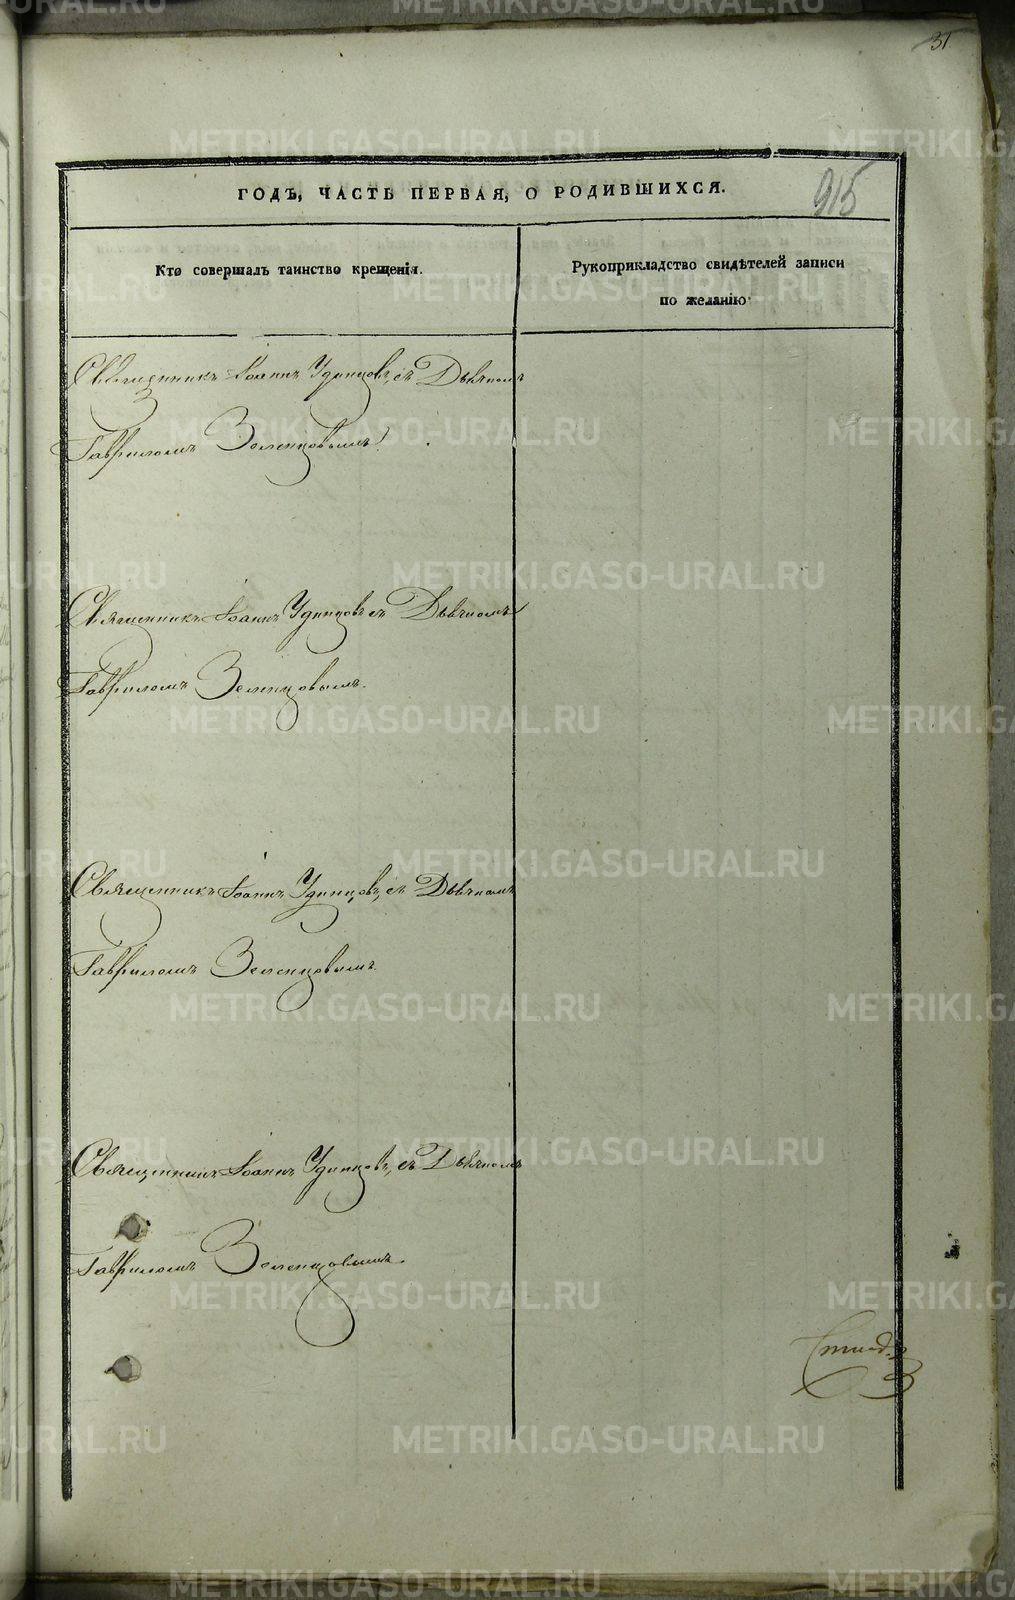 31.
915
ГОДЪ, ЧАСТЬ ПЕРВАЯ, О РОДИВШИХСЯ.
Кто совершалъ таинство крещенія.
Рукоприкладство свидѣтелей записи
по желанію
Священникъ Іоаннъ Удинцовъ, съ Дьячкомъ
Гавриломъ Зеленцовымъ.
Священникъ Іоаннъ Удинцовъ съ Дьячкомъ
Гавриломъ Зеленцовымъ.
Священникъ Іоаннъ Удинцовъ, съ Дьячкомъ
Гавриломъ Зеленцовымъ.
Священникъ Іоаннъ Удинцовъ, съ Дьячкомъ
Гавриломъ Зеленцовымъ.
METRIKI.GASO-URAL.RU